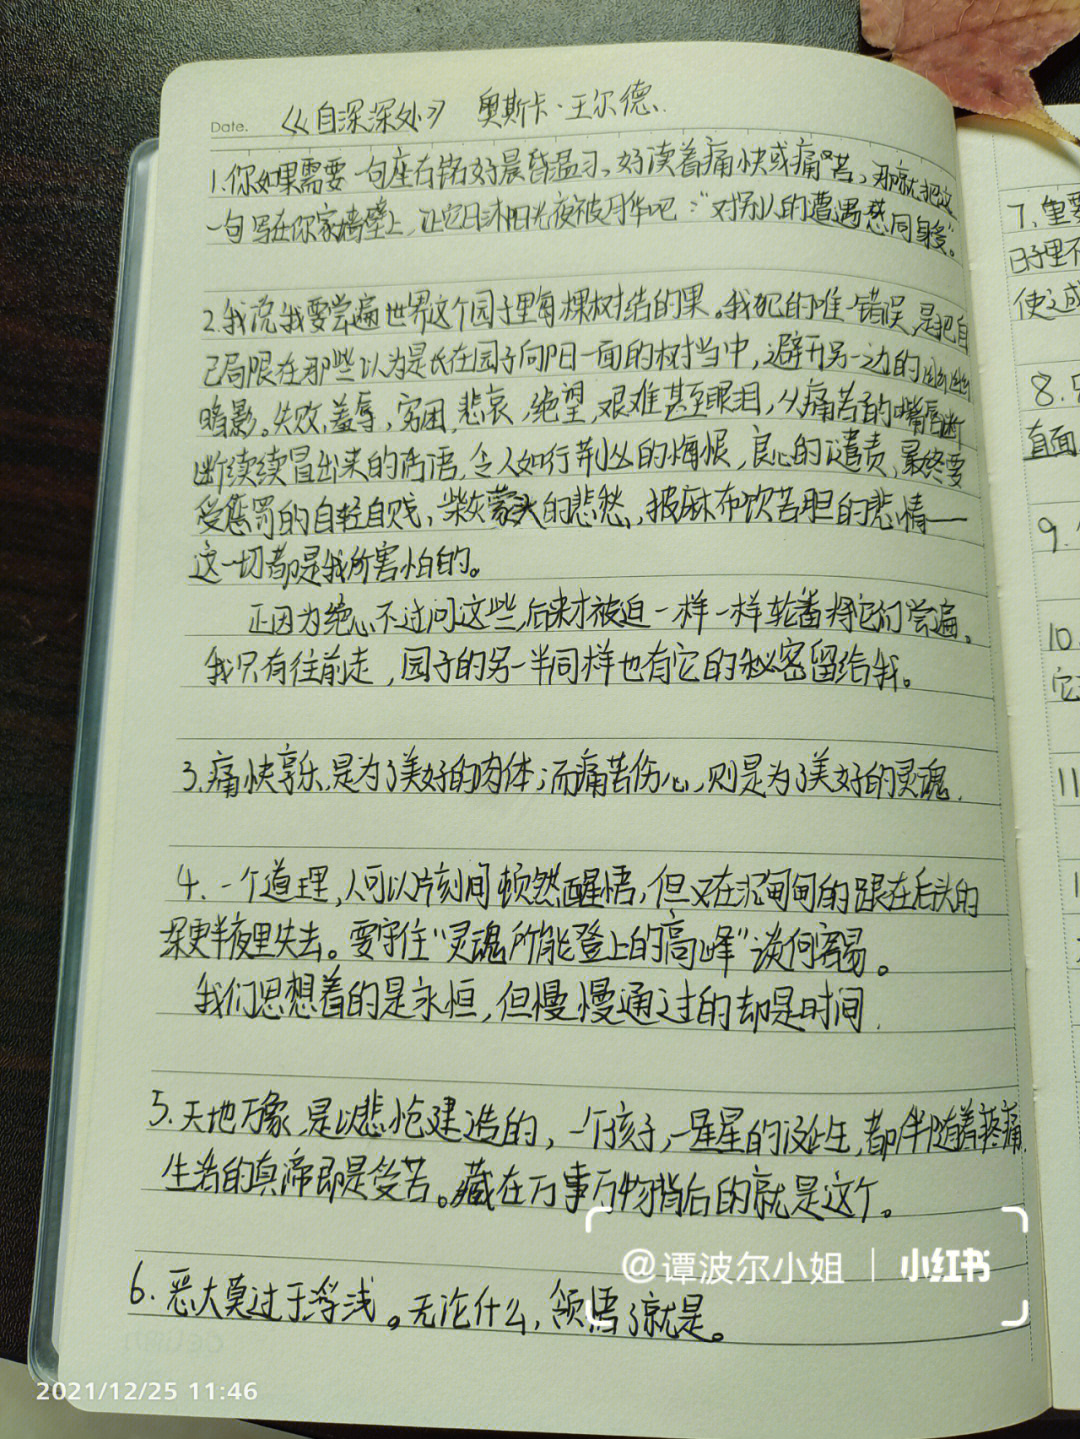 Date. 《自深深处》 奥斯卡·王尔德.
1.你如果需要一句座右铭好晨昏温习,好读着痛快或痛苦,那就把这
一句写在你家墙壁上,让它日沐阳光夜被月华吧:“对别人的遭遇慈同身受”。
2.我说我要尝遍世界这个园子里每棵树结的果。我犯的唯一错误,是把自
己局限在那些以为是长在园子向阳一面的树当中,避开另一边的幽幽
暗影。失败,羞辱,穷困,悲哀,绝望,艰难甚至眼泪,从痛苦的嘴唇断
断续续冒出来的话语,令人如行荆丛的悔恨,良心的谴责,最终要
受惩罚的自轻自贱,柴灰蒙头的悲愁,披麻布饮苦胆的悲情——
这一切都是我所害怕的。
正因为绝心不过问这些,后来才被迫一样一样轮番将它们尝遍。
我只有往前走,园子的另一半同样也有它的秘密留给我。
3.痛快享乐,是为了美好的肉体;而痛苦伤心,则是为了美好的灵魂.
4.一个道理,人可以片刻间顿然醒悟,但又在沉甸甸的跟在后头的
深更半夜里失去。要守住“灵魂所能登上的高峰”谈何容易。
我们思想着的是永恒,但慢慢通过的却是时间.
5.天地万象,是以悲怆建造的,一个孩子,一星星的诞生,都伴随着疼痛.
生活的真谛即是受苦。藏在万事万物背后的就是这个。
6.恶大莫过于浮浅。无论什么,领悟了就是。
7.重要
日子里不
使这成
8.
直面
9.
10
它
11
1
@谭波尔小姐 | 小红书
2021/12/25 11:46